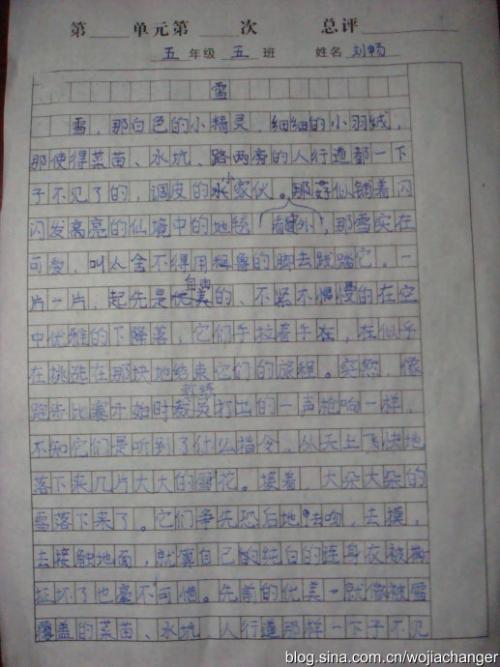 第 单元第 次 总评
五 年级 五 班 姓名 刘畅
雪
雪，那白色的小精灵，细细的小羽绒，
那使得菜苗、水坑、路两旁的人行道都一下
子不见了的，调皮的小家伙。那好似铺着闪
闪发亮的仙境中的地毯，那雪实在
可爱，叫人舍不得用 的脚去践踏它，一
片一片，起先是自由的、不紧不慢的在空
中优雅的下降落，它们手拉着手在，在似乎
在挑选在那块地结束它们的旅程。突然，像
跑步比赛开始时裁判打出的一声枪响一样，
不知它们是听到了什么指令，从天上飞快地
落下来几片大大的雪花。接着，大朵大朵的
雪落下来了。它们争先恐后地去吻，去摸，
去接触地面，就算自己的纯白的连身衣被
坏了也毫不可惜。先前的优美一就像被雪
覆盖的菜苗、水坑、人行道那样一下子不见
blog.sina.com.cn/wojiachanger